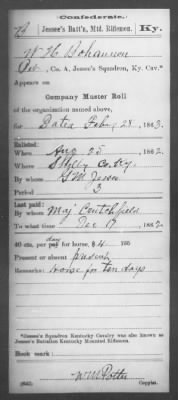 Confederate.
Jessee's Batt'n, Mtd. Riflemen. Ky.
W H Bohannon
Pvt, Co. A, Jessee's Squadron, Ky. Cav.*
Appears on
Company Muster Roll
of the organization named above,
for Dated Feby 28, 1863.
Enlisted:
When Aug 25, 1862.
Where Shelby County
By whom G M Jessee
Period 3
Last paid:
By whom Maj
To what time Dec 17, 1862.
40 cts. per day for horse, $4 100
Present or absent present
Remarks: horse for ten days
*Jessee's Squadron Kentucky Cavalry was also known as
Jessee's Battalion Kentucky Mounted Riflemen.
Book mark:
W W Potter
(642) Copyist.